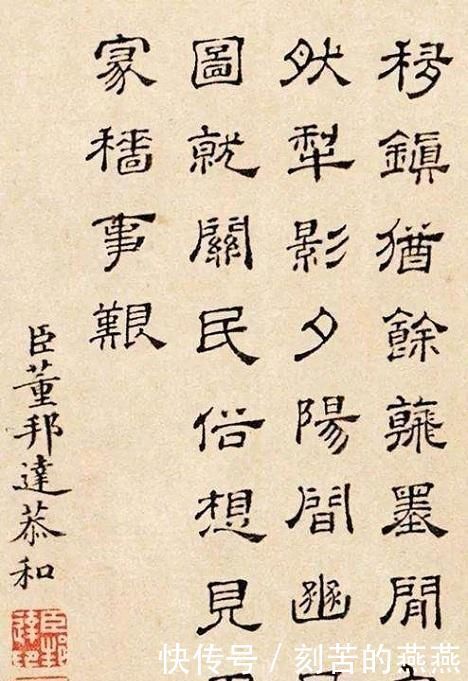 移鎮猶餘墨閒
然犁影夕陽間豳
圖就關民俗想見
家穡事艱
臣董邦達恭和
快传号/刻苦的燕燕